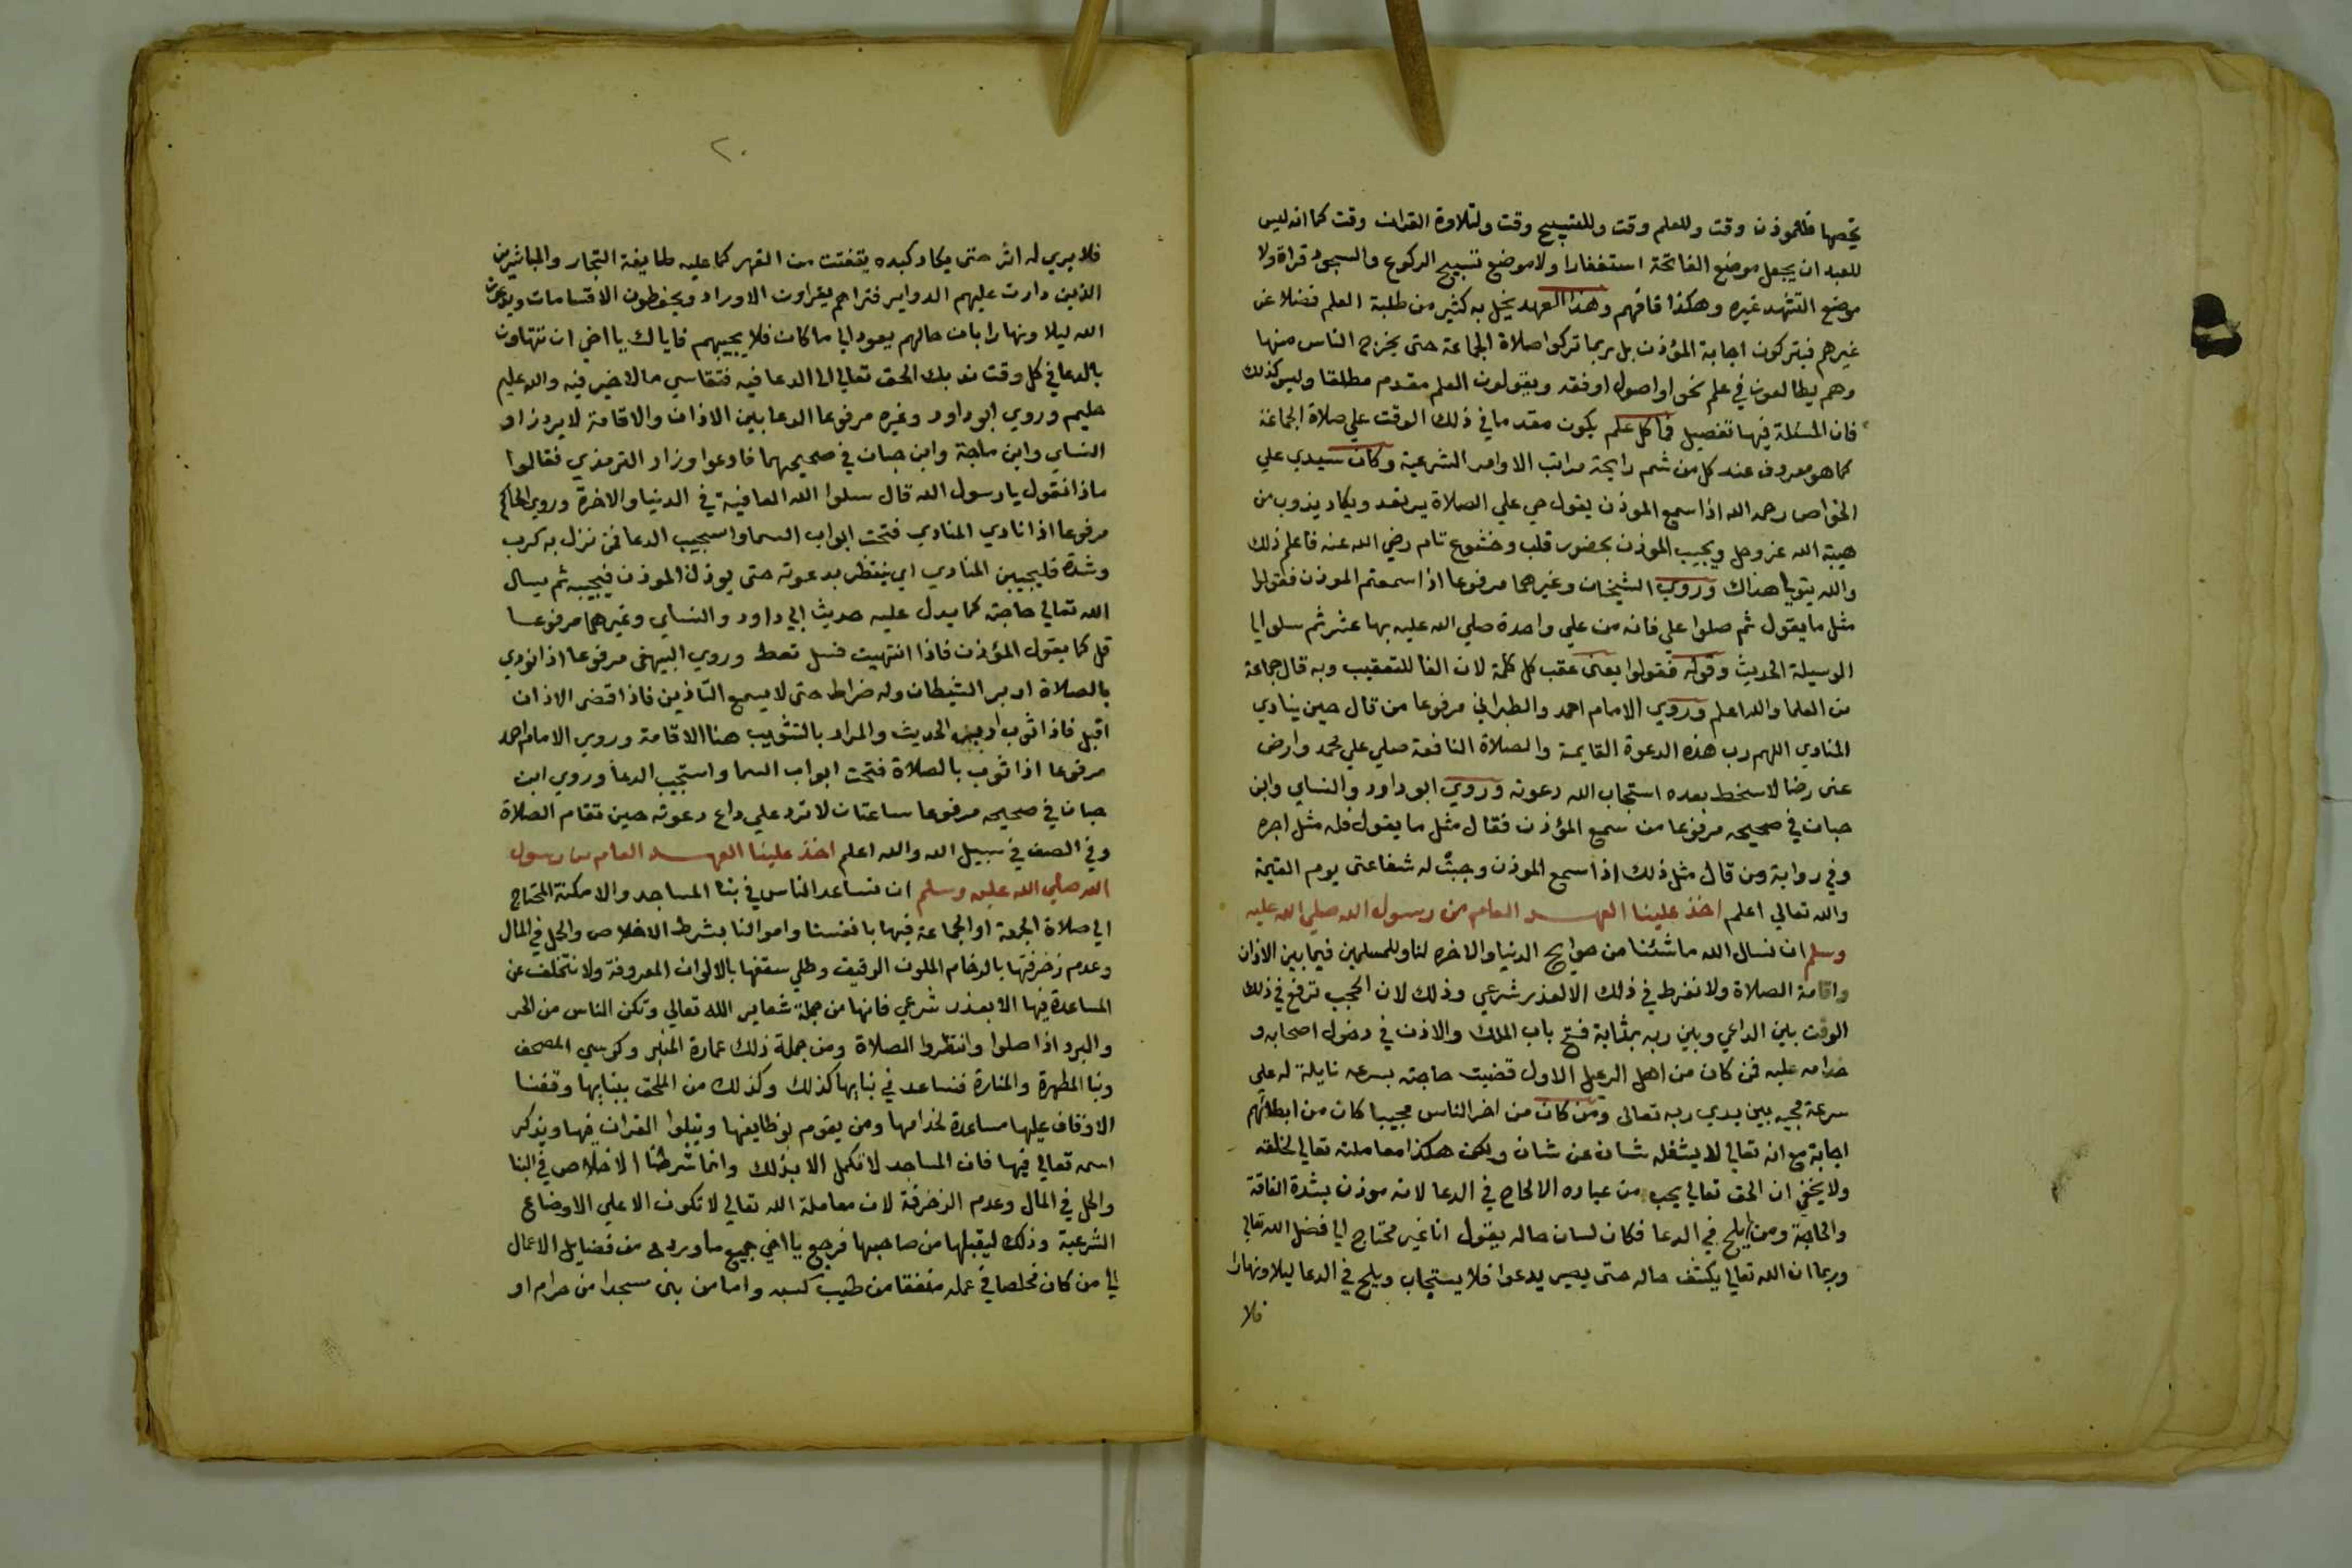 يخصها فللموذن وقت وللعلم وقت وللتسبيح وقت ولتلاوة القران وقت كما انه ليس
للعبد ان يجعل موضع الفاتحة استغفارا ولا موضع تسبيح الركوع والسجود قراة ولا
موضع التشهد غيره وهكذا فافهم وهذا العهد يخل به كثير من طلبة العلم فضلا عن
غيرهم فيتركون اجابة المؤذن بل ربما تركوا صلاة الجماعة حتى يخرج الناس منها
وهم يطالعون في علم نحو او اصول او فقه ويقولون العلم مقدم مطلقا وليس كذلك
فان المسئلة فيها تفصيل فما كل علم يكون مقدما في ذلك الوقت علي صلاة الجماعة
كما هو معروف عند كل من شم رايحة مراتب الاوامر الشرعية وكان سيدي علي
الخواص رحمه الله اذا سمع الموذن يقول حي علي الصلاة يرتعد ويكاد يذوب من
هيبة الله عز وجل ويجيب الموذن بحضور قلب وخشوع تام رضي الله عنه فاعلم ذلك
والله يتولي هداك وروي الشيخان وغيرهما مرفوعا اذا سمعتم الموذن فقولوا
مثل ما يقول ثم صلوا علي فانه من علي واحدة صلي الله عليه بها عشر ثم سلوا لي
الوسيلة الحديث وقوله فقولوا يعني عقب كل كلمة لان الفا للتعقيب وبه قال جماعة
من العلما والله اعلم وروي الامام احمد والطبراني مرفوعا من قال حين ينادي
المنادي اللهم رب هذه الدعوة القايمة والصلاة النافعة صلي علي محمد وارض
عني رضا لا سخط بعده استجاب الله دعوته وروي ابو داود والنساي وابن
حبان في صحيحه مرفوعا من سمع المؤذن فقال مثل ما يقول فله مثل اجره
وفي رواية ومن قال مثل ذلك اذا سمع الموذن وجبت له شفاعتي يوم القيمة
والله تعالي اعلم اخذ علينا العهد العام من رسول الله صلي الله عليه
وسلم ان نسال الله ما شئنا من حوايج الدنيا والاخره لنا وللمسلمين فيما بين الاذان
واقامة الصلاة ولا نفرط في ذلك الا لعذر شرعي وذلك لان الحجب ترفع في ذلك
الوقت بين الداعي وبين ربه بمثابة فتح باب الملك والاذن في دخول اصحابه و
خدامه عليه فمن كان من اهل الرعيل الاول قضيت حاجته بسرعه نايلة له علي
سرعة مجيه بين يدي ربه تعالى ومن كان من اخر الناس مجيبا كان من ابطائهم
اجابة مع انه تعالي لا يشغله شان عن شان ولكن هكذا معاملته تعالي لخلقه
ولا يخفي ان الحق تعالي يحب من عباده الالحاح في الدعا لانه موذن بشدة الفاقة
والحاجة ومن لم يلح في الدعا فكان لسان حاله يقول انا غير محتاج الي فضل الله تعالي
وربما ان الله تعالي يكشف حاله حتى يصير يدعوا فلا يستجاب ويلح في الدعا ليلا ونهارا
فلا
٢٠
فلا يري له اثر حتى يكاد كبده يتفتت من القهر كما عليه طايفة التجار والمباشرين
الذين دارت عليهم الدواير فتراهم يقراون الاوراد ويحفظون الاقسامات ويدعون
الله ليلا ونهارا بان حالهم يعود الي ما كان فلا يجيبهم فاياك يا اخي ان تتهاون
بالدعا في كل وقت ندبك الحق تعالي الي الدعا فيه فتقاسي ما لا خير فيه والله عليم
حليم وروي ابو داود وغيره مرفوعا الدعا بين الاذان والاقامة لا يرد زاد
النساي وابن ماجة وابن حبان في صحيحهما فادعوا وزاد الترمذي فقالوا
ماذا نقول يا رسول الله قال سلوا الله العافية في الدنيا والاخرة وروي الحاكم
مرفوعا اذا نادي المنادي فتحت ابواب السما واستجيب الدعا فمن نزل به كرب
وشدة فليجيبن المنادي اي ينتظر بدعوته حتى يوذن الموذن فيجيبه ثم يسال
الله تعالي حاجته كما يدل عليه حديث ابي داود والنساي وغيرهما مرفوعا
قل كما يقول المؤذن فاذا انتهيت فسل تعط وروي البيهقي مرفوعا اذا نودي
بالصلاة ادبر الشيطان وله ضراط حتى لا يسمع التاذين فاذا قضى الاذان
اقبل فاذا ثوب ادبر الحديث والمراد بالتثويب هنا الاقامة وروي الامام احمد
مرفوعا اذا ثوب بالصلاة فتحت ابواب السما واستجيب الدعا وروي ابن
حبان في صحيحه مرفوعا ساعتان لا ترد علي داع دعوته حين تقام الصلاة
وفي الصف في سبيل الله والله اعلم اخذ علينا العهد العام من رسول
الله صلي الله عليه وسلم ان نساعد الناس في بنا المساجد والامكنة المحتاج
الي صلاة الجمعة او الجماعة فيها بانفسنا واموالنا بشرط الاخلاص والحل في المال
وعدم زخرفتها بالرخام الملون الرقيق وطلي سقفها بالالوان المعروفة ولا نتخلف عن
المساعدة فيها الا بعذر شرعي فانها من جملة شعاير الله تعالي وتكن الناس من الحر
والبرد اذا صلوا وانتظروا الصلاة ومن جملة ذلك عمارة المنبر وكرسي المصحف
وبنا المطهرة والمنارة فنساعد في بنايها كذلك وكذلك من الملحق ببنايها وقفنا
الاوقاف عليها مساعدة لخدامها ومن يقوم بوظايفها ويتلوا القران فيها ويذكر
اسمه تعالي فيها فان المساجد لا تكمل الا بذلك وانما شرطنا الاخلاص في البنا
والحل في المال وعدم الزخرفة لان معاملة الله تعالي لا تكون الا علي الاوضاع
الشرعية وذلك ليقبلها من صاحبها فرجع يا اخي جميع ما ورد من فضايل الاعمال
الي من كان مخلصا في عمله منفقا من طيب كسبه واما من بنى مسجدا من حرام او